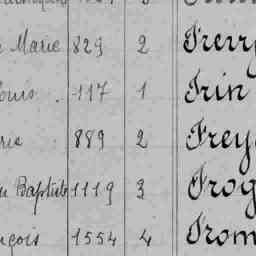 Marie 829 2 Frerry
Louis . 117 1 Frin
889 2 Frey
Baptiste 1119 3 Frog
nçois 1554 4 From